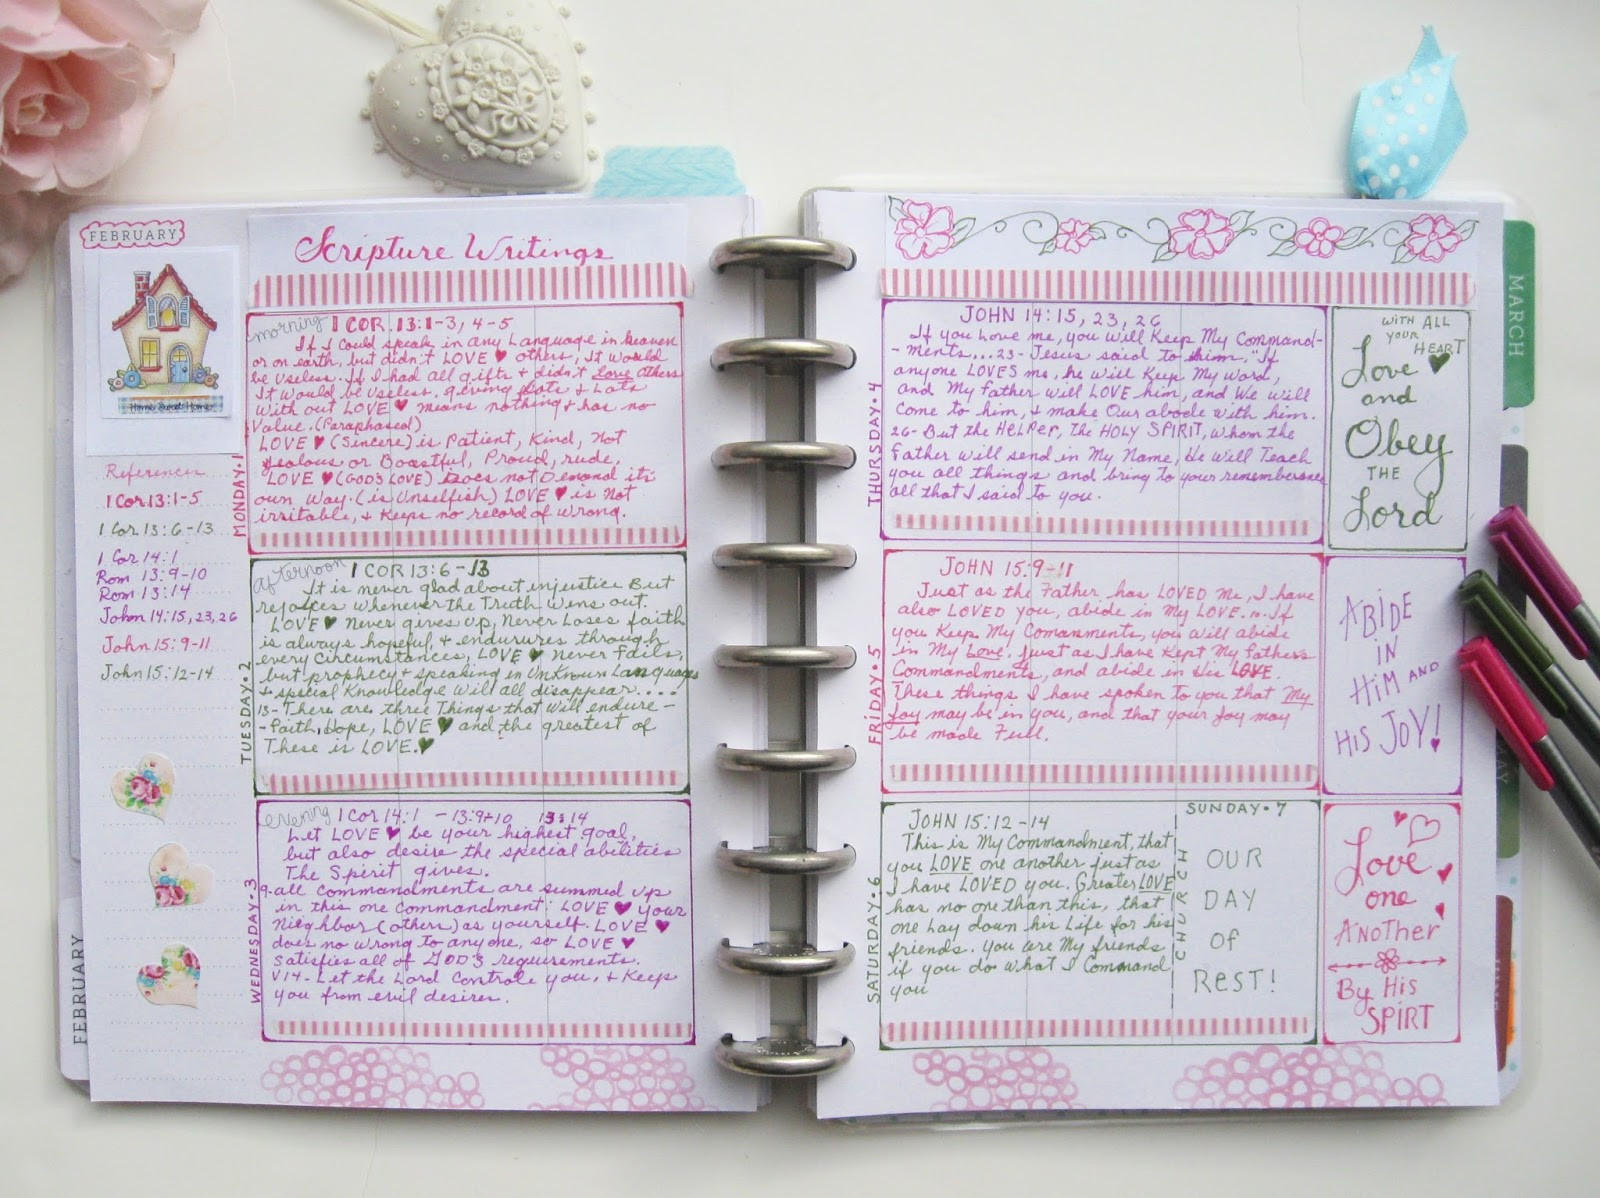 FEBRUARY
Scripture Writings
Home Sweet Home
References
1 Cor 13:1-5
1 Cor 13:6-13
1 Cor 14:1
Rom 13:9-10
Rom 13:14
John 14:15, 23, 26
John 15:9-11
John 15:12-14
FEBRUARY
MONDAY • 1
morning 1 COR. 13:1-3, 4-5
If I Could speak in any Language in heaven
or on earth, but didn't LOVE ♥ others, It would
be Useless. If I had all gifts + didn't Love others
It would be useless, giving Lots + Lots
With out LOVE ♥ means nothing + has no
Value. (Paraphased)
LOVE ♥ (Sincere) is Patient, Kind, Not
Jealous or Boastful, Proud, rude,
LOVE ♥ (GOD'S LOVE) Does not Demand it's
own way. (is Unselfish) LOVE ♥ is Not
irritable, + Keeps no record of wrong.
TUESDAY • 2
afternoon 1 COR 13:6-13
It is never glad about injustice But
rejoices whenever the Truth wins out.
LOVE ♥ Never gives up, Never Loses faith
is always hopeful, + endurures through
every Circumstances, LOVE ♥ Never Fails,
but prophecy + speaking in UnKnown Languages
+ special Knowledge will all disappear....
13- There are three Things that will endure -
- Faith, Hope, LOVE ♥ and the greatest of
These is LOVE. ♥
WEDNESDAY • 3
evening 1 Cor 14:1 - 13:9+10 13:14
Let LOVE ♥ be your highest goal,
but also desire the special abilities
The Spirit gives.
9-all commandments are summed up
in this one Commandment: LOVE ♥ your
Nieghbor (others) as yourself. LOVE ♥
does no wrong to anyone, so LOVE ♥
satisfies all of GOD's requirements.
V14- Let the Lord Controle you, + Keeps
you from evil desires.
THURSDAY • 4
JOHN 14:15, 23, 26
If you Love me, you will Keep My Command-
- ments...23- Jesus said to him, "If
anyone LOVES me, he will Keep My Word,
and My Father will LOVE him, and We will
Come to him, + make Our abode with him.
26- But the HELPER, the HOLY SPIRIT, whom the
Father will send in My Name, He will Teach
you all things and bring to your rememberance
all that I said to you.
WITH ALL
YOUR
HEART
Love ♥
and
Obey
THE
Lord
FRIDAY • 5
JOHN 15:9-11
Just as the Father has LOVED Me, I have
also LOVED you, abide in My LOVE. 10. If
you Keep My Comanments, you will abide
in My Love. Just as I have Kept My Fathers
Commandments, and abide in His LOVE.
These things I have spoken to you that My
Joy may be in you, and that your Joy may
be made Full.
ABIDE
IN
HIM AND
HIS JOY!
SATURDAY • 6
JOHN 15:12-14
This is My Commandment, that
you LOVE one another just as
I have LOVED you. Greater LOVE
has no one than this, that
one Lay down his Life for his
friends. You are My friends
if you do what I Command
you
SUNDAY • 7
CHURCH
OUR
DAY
OF
REST!
Love
one
ANOTHER
By His
SPIRIT
MARCH